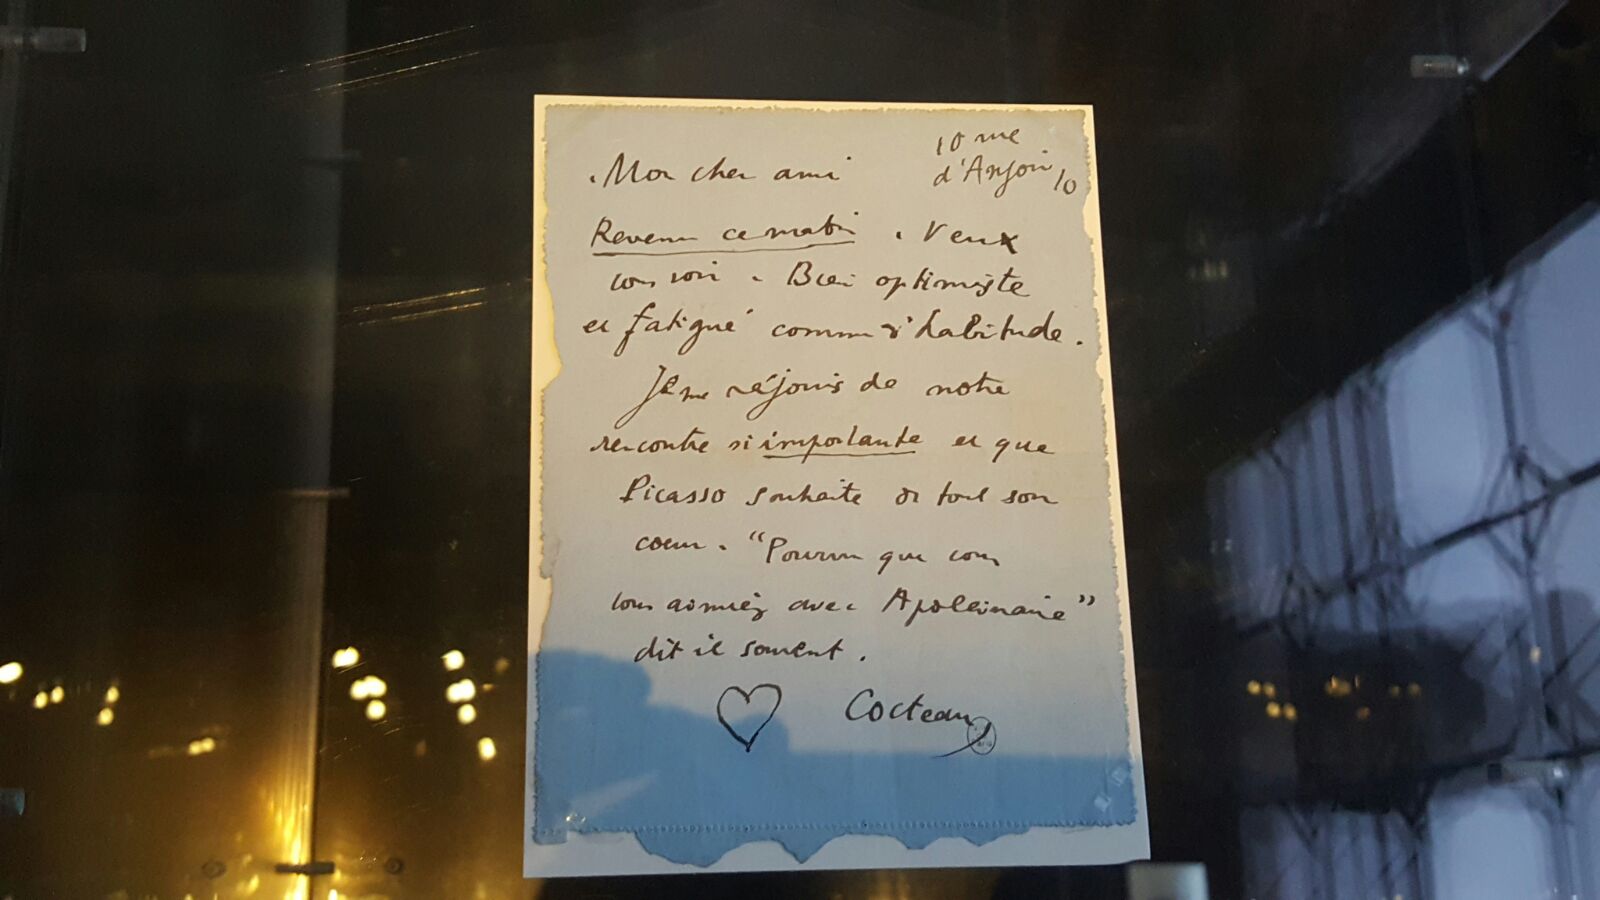 10 rue
d'Anjou 10
Mon cher ami
Revenu ce matin. Veux
vous voir. Bien optimiste
et fatigué comme d'habitude.
Je me réjouis de notre
rencontre si importante et que
Picasso souhaite de tout son
coeur. "Pourvu que vous
vous aimiez avec Apoleinaire"
dit il souvent.
Cocteau